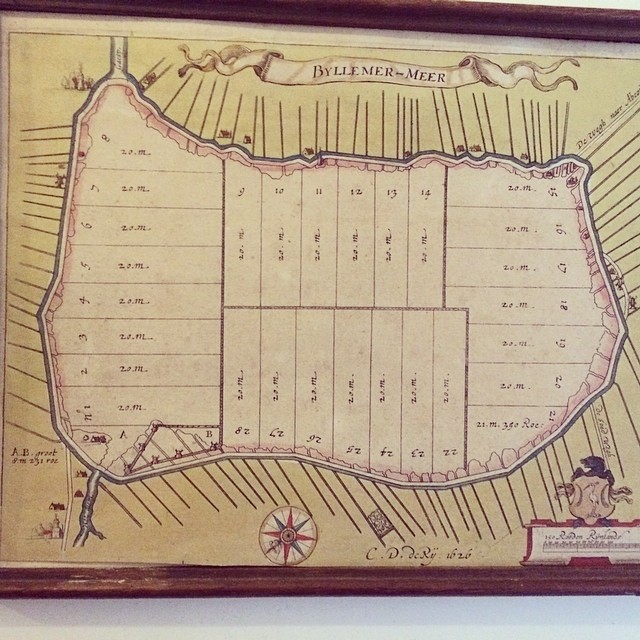 BYLLEMER-MEER
8
20.m.
7
20.m.
6
20.m.
5
20.m.
4
20.m.
3
20.m.
2
20.m.
20.m.
9
10
11
12
13
14
20.m.
20.m.
20.m.
20.m.
20.m.
20.m.
20.m.
15
20.m.
16
20.m.
17
20.m.
18
20.m.
19
20.m.
20
21.m.390 Roe.
21
20.m.
20.m.
20.m.
20.m.
20.m.
20.m.
20.m.
28
27
26
25
24
23
22
A
B
A.B. groot
De wegh naer
150 Roeden Rynlands
C. D. de Rÿ. 1626